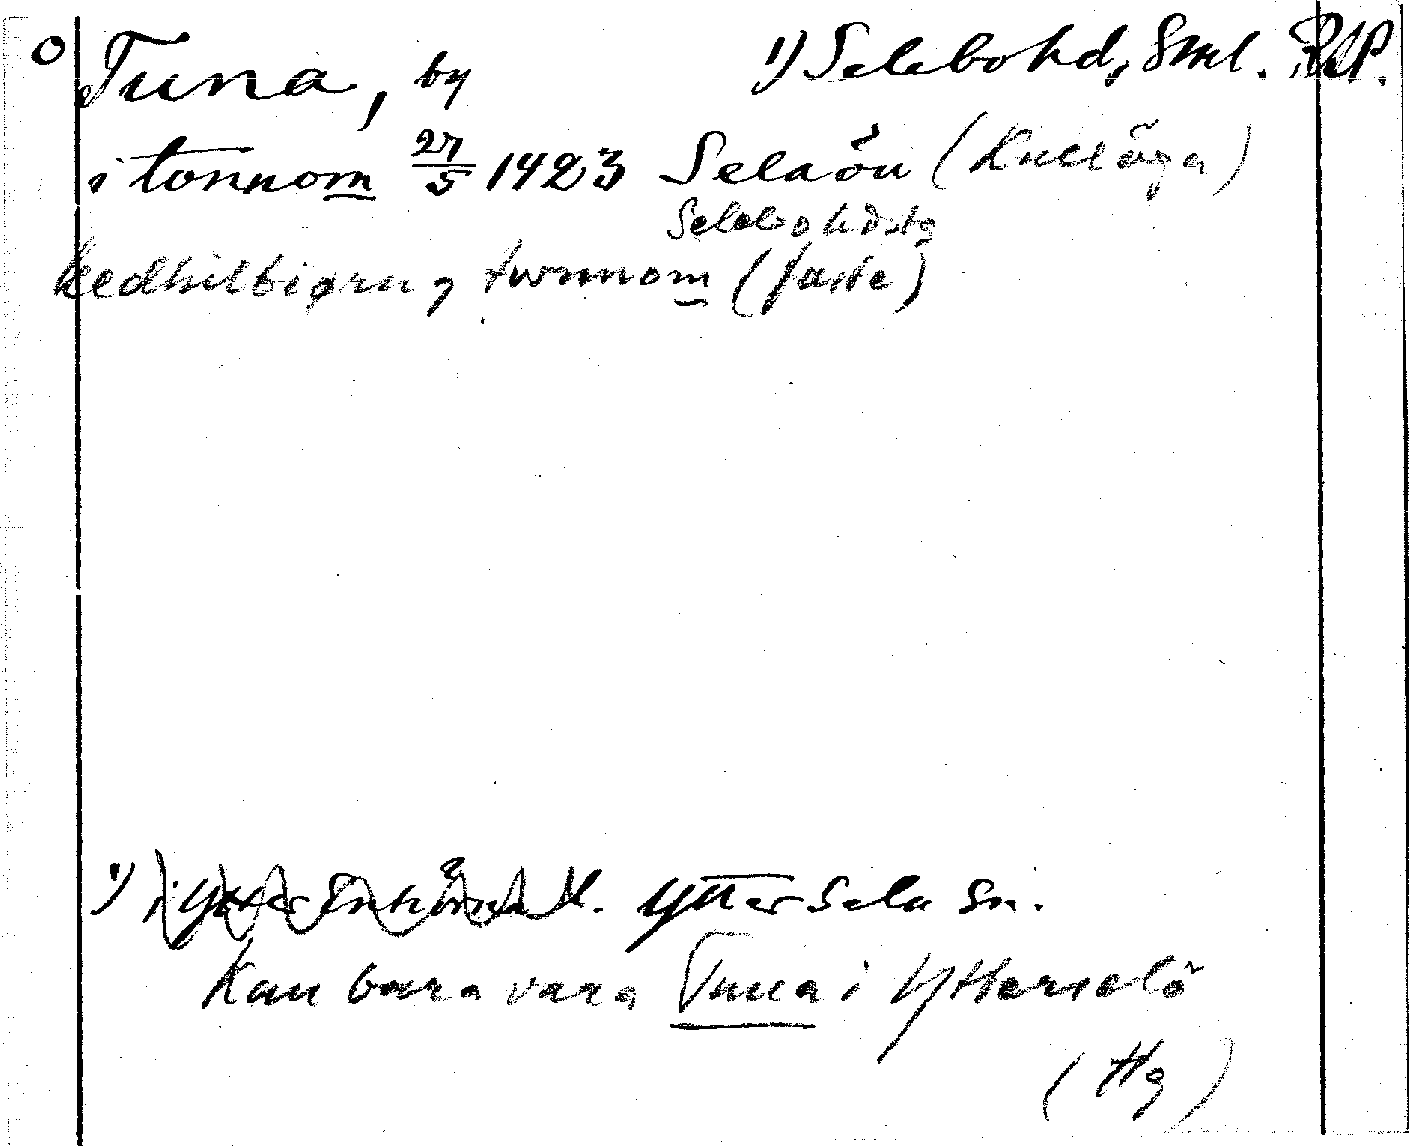 O Tuna, by 1) Selebo hd, Sml. RAP.
i tonnom 27/5 1423 Selaön (Kulläga)
Selebohdstg
kedhilbiørn y twnnom (faste)
1) i Ytter Enhörna l. Ytter Sela Sn.
Kan bara vara Tuna i Ytterselö
(Hg)